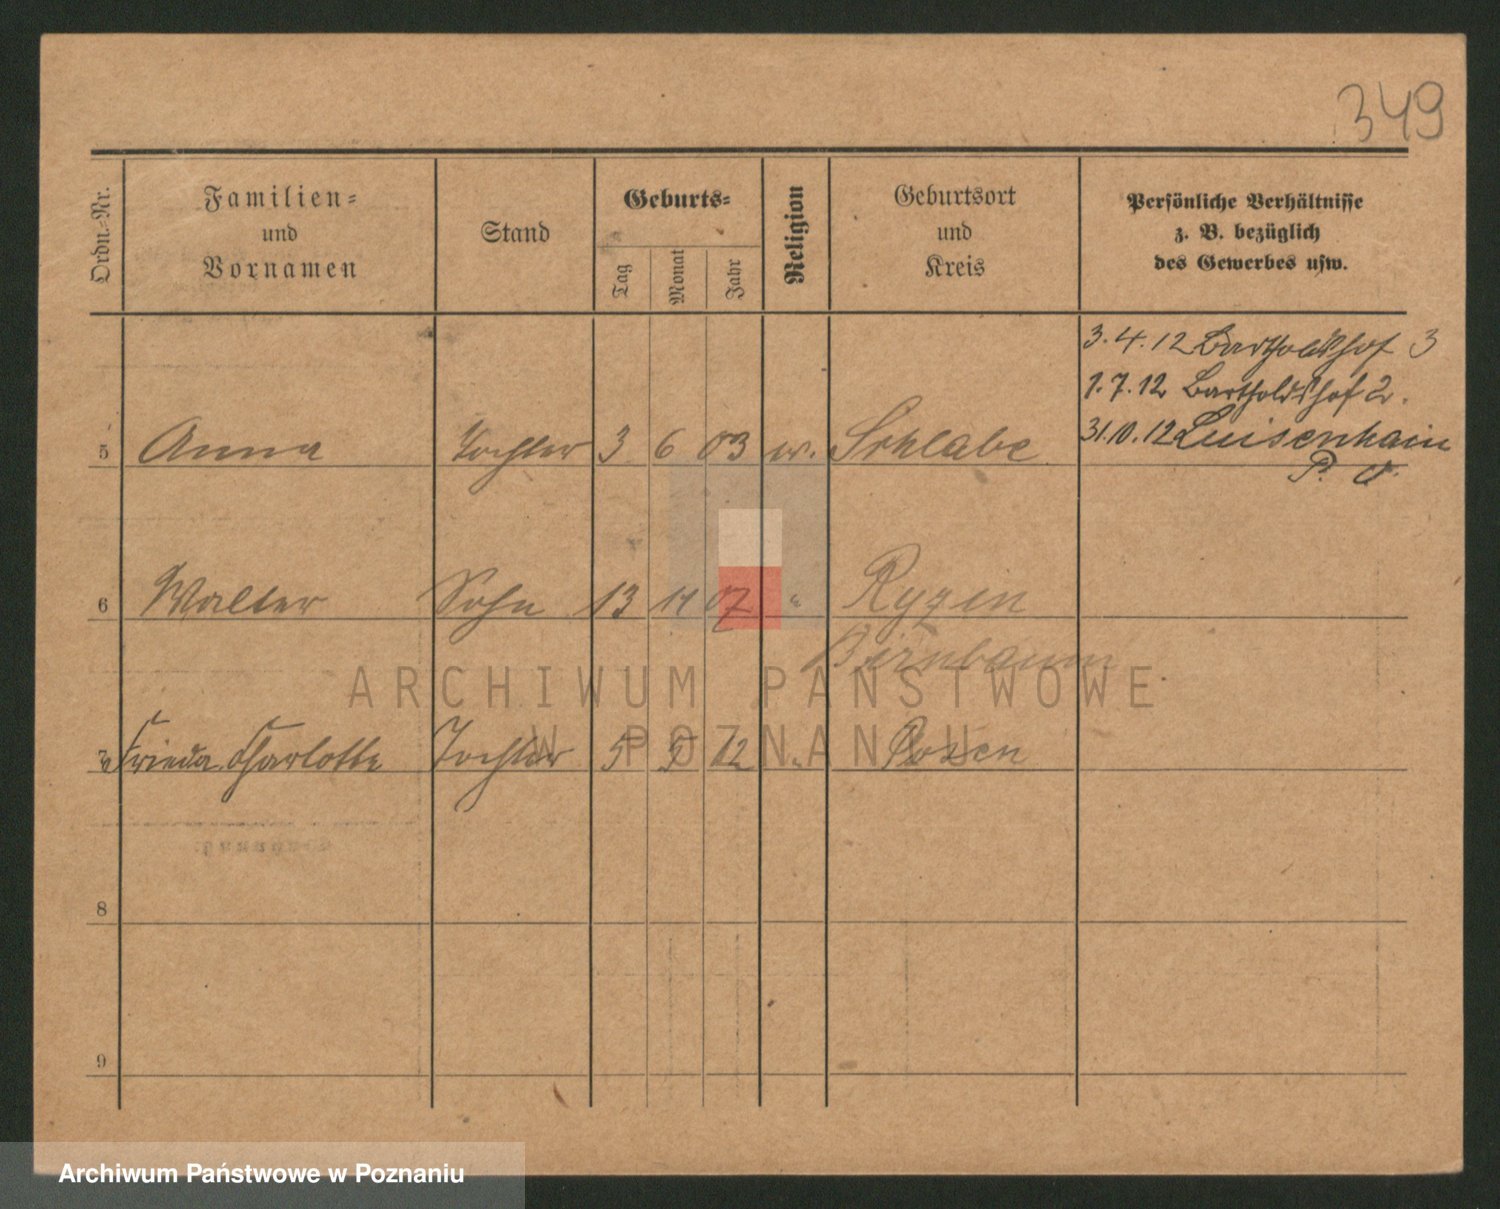 349
Ordn.-Nr.
Familien-
und
Vornamen
Stand
Geburts-
Tag
Monat
Jahr
Religion
Geburtsort
und
Kreis
Persönliche Verhältnisse
z. B. bezüglich
des Gewerbes usw.
3.4.12 Bartholdshof 3
1.7.12 Bartholdshof 2.
31.10.12 Luisenhain
P. O.
5 Anna Tochter 3 6 03 ev. Schlabe
6 Walter Sohn 13 11 07 " Ryzin
Birnbaum
7 Frieda Charlotte Tochter 5 5 12 " Posen
8
9
ARCHIWUM PAŃSTWOWE
W POZNANIU
Archiwum Państwowe w Poznaniu